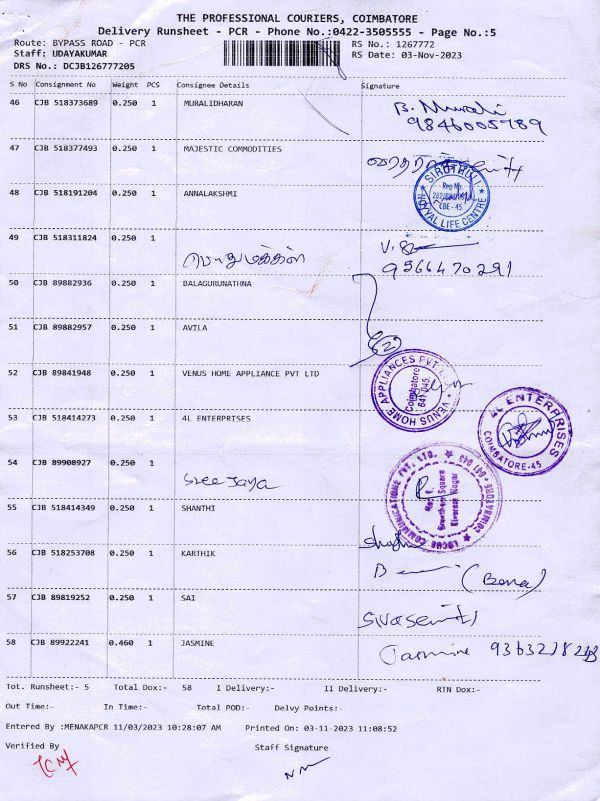 THE PROFESSIONAL COURIERS, COIMBATORE
Delivery Runsheet - PCR - Phone No.:0422-3505555 - Page No.:5
Route: BYPASS ROAD - PCR RS No.: 1267772
Staff: UDAYAKUMAR RS Date: 03-Nov-2023
DRS No.: DCJB126777205
S No Consignment No Weight PCS Consignee Details Signature
46 CJB 518373689 0.250 1 MURALIDHARAN B. Murali
9846005989
47 CJB 518377493 0.250 1 MAJESTIC COMMODITIES
48 CJB 518191204 0.250 1 ANNALAKSHMI SIROTHULI NOYYAL LIFE CENTRE Reg No. CBE - 45
49 CJB 518311824 0.250 1 பொதுமக்கள்
9566470291
50 CJB 89882936 0.250 1 BALAGURUNATHNA
51 CJB 89882957 0.250 1 AVILA
52 CJB 89841948 0.250 1 VENUS HOME APPLIANCE PVT LTD VENUS HOME APPLIANCES PVT. Coimbatore 641 045
53 CJB 518414273 0.250 1 4L ENTERPRISES 4L ENTERPRISES COIMBATORE-45
54 CJB 89908927 0.250 1 Sree Jaya COMMUNICATIONZ PVT. LTD. COIMBATORE - 641 045
55 CJB 518414349 0.250 1 SHANTHI
56 CJB 518253708 0.250 1 KARTHIK
57 CJB 89819252 0.250 1 SAI
58 CJB 89922241 0.460 1 JASMINE Jasmine
Tot. Runsheet:- 5 Total Dox:- 58 I Delivery:- II Delivery:- RTN Dox:-
Out Time:- In Time:- Total POD:- Delvy Points:-
Entered By :MENAKAPCR 11/03/2023 10:28:07 AM Printed On: 03-11-2023 11:08:52
Verified By Staff Signature